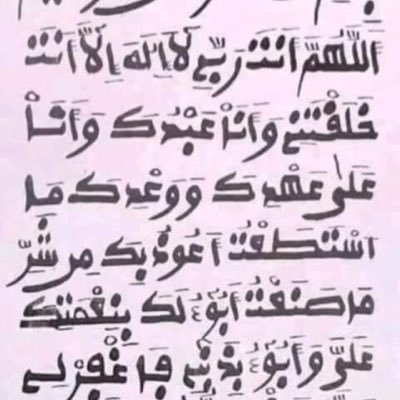 اَللَّهُمَّ أَنْتَ رَبِّي لَا إِلَهَ إِلَّا أَنْتَ
خَلَقْتَنِي وَأَنَا عَبْدُكَ وَأَنَا
عَلَى عَهْدِكَ وَوَعْدِكَ مَا
اسْتَطَعْتُ أَعُوذُ بِكَ مِنْ شَرِّ
مَا صَنَعْتُ أَبُوءُ لَكَ بِنِعْمَتِكَ
عَلَيَّ وَأَبُوءُ بِذَنْبِي فَاغْفِرْ لِي